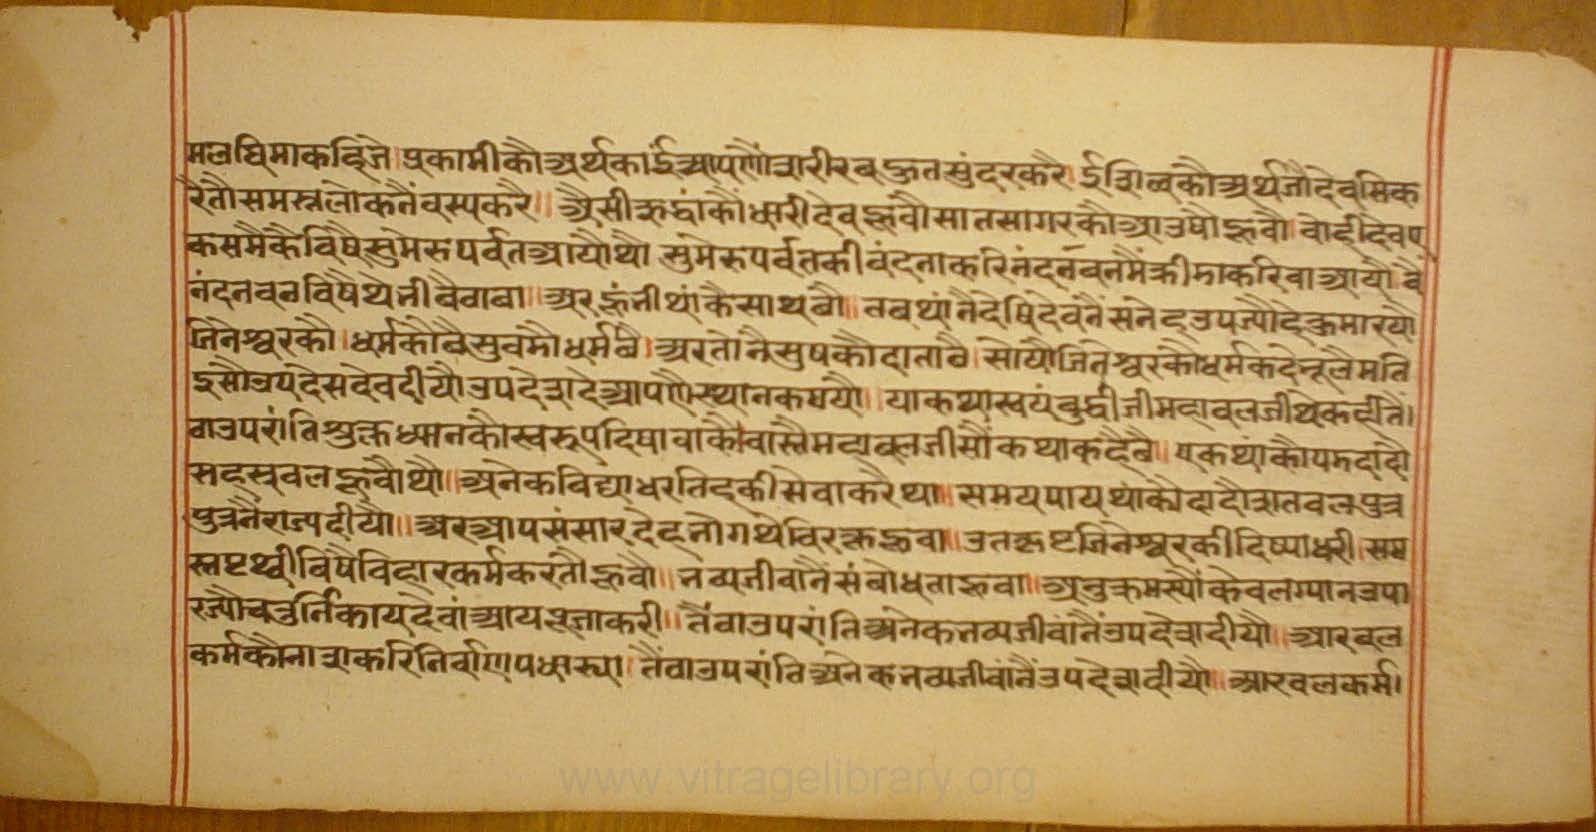 मलघिमाकहिजे। प्रकामीकौअर्थकांईआपणौंशरीरबहुतसुंदरकरै। ईशित्वकौअर्थजौदेवसिक
रैतौसमस्तलोकनैंवस्यकरै॥ ऐसीऋद्धांकौंधारीदेवहूवौसातसागरकौआउषौहूवौ। वोहीदेवए
कसमैकैविषैसुमेरुपर्वतआयौथौ सुमेरुपर्वतकीवंदनाकरिनंदनवनमैंक्रीमाकरिवाआयौ वैं
नंदनवनविषैथेभीबैठाबा॥ अरहूंभीथांकैसाथबौ॥ तबथांनैदेषिदेवनैंसनेहउपज्यौहेकुमारयो
जिनेश्वरकौ। धर्मकौबैसुबमौधर्मबै। अरतौनैसुषकौदाताबै। सोयौजिनेश्वरकौधर्मकदेभूलैमति
इसौउपदेसदेवदीयौउपदेशदेआपणैस्थानकगयौ॥ याकथास्वयंबुद्धीजीमहाबलजीथेकहीतैं।
वाउपरांतिशुक्लध्यानकौस्वरूपदिषावाकौवास्तैमहाबलजीसौंकथाकहैबै॥ एकथांकौपमदादौ
सहस्रबलहूवौथौ॥ अनेकविद्याधरतिहकीसेवाकरैथा॥ समयपायथांकौदादौशतबलपुत्र
पुत्रनैराज्यदीयौ॥ अरआपसंसारदेहभोगथेविरक्तहूवा॥ उतकृष्टजिनेश्वरकीदिष्याधरी। सम
स्तपृथ्वीविषैविहारकर्मकरतौहूवौ॥ भव्यजीवांनैंसंबोधताहूवा॥ अनुक्रमस्यौंकेवलग्यानउपा
रज्यौचतुर्निकायदेवांआयपूजाकरी॥ तैंवाउपरांतिअनेकभव्यजीवांनैंउपदेशदीयौ॥ आरबल
कर्मकौनाशकरिनिर्वाणपधास्या। तैंवाउपरांतिअनेकभव्यजीवांनैंउपदेशदीयौ॥ आरबलकर्म।
www.vitragelibrary.org